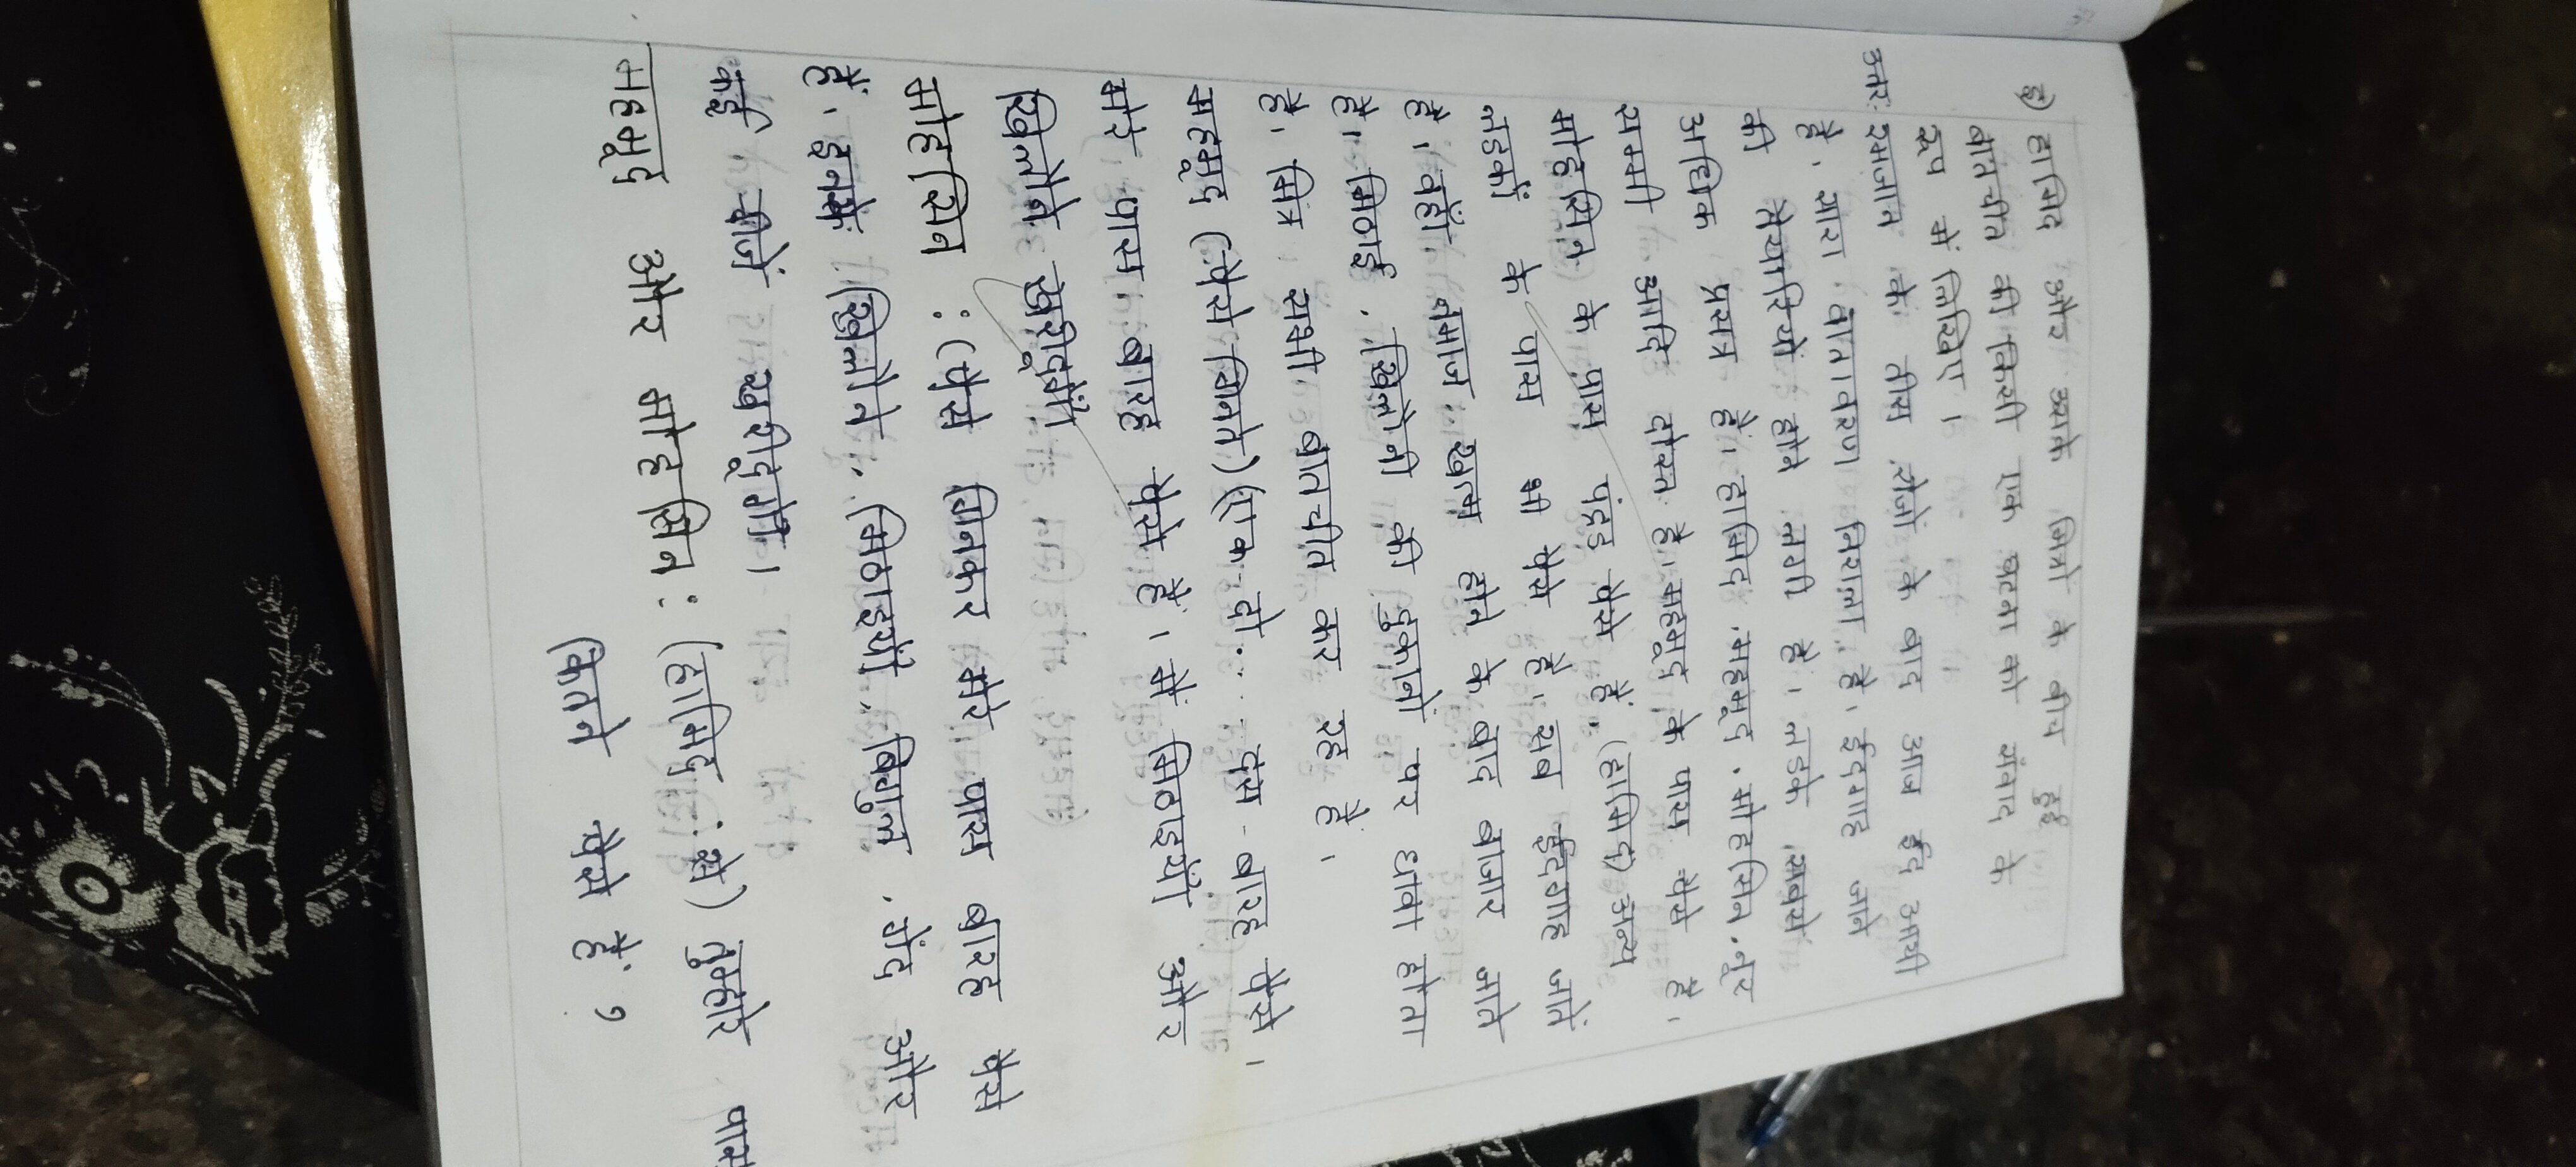 इ) हामिद और उसके मित्रों के बीच हुई
बातचीत की किसी एक घटना को संवाद के
रूप में लिखिए ।
उत्तर: रमजान के तीस रोजों के बाद आज ईद आयी
है . सारा वातावरण निराला है . ईदगाह जाने
की तैयारियों होने लगी है . लडके सबसे
अधिक प्रसन्न है . हामिद . महमूद . मोहसिन . नूर
सम्मी आदि दोस्त है . महमूद के पास पैसे है .
मोहसिन के पास पंद्रह पैसे है . (हामिद) अन्य
लडकों के पास भी पैसे है . सब ईदगाह जाते
है . वहाँ नमाज खत्म होने के बाद बाजार जाते
है . मिठाई . खिलोनी की दुकानों पर धावा होता
है . मित्र सभी बातचीत कर रहे है .
महमूद (पैसे गिनते) (एक - दो .. दस - बारह पैसे .
मेरे पास बारह पैसे है . मे मिठाइयों और
खिलौने खरीदूगाँ
मोहसिन : (पैसे गिनकर मेरे पास बारह पैसे
है . इनसे खिलौने . मिठाइयाँ . बिगुल . गेंद और
कई चीजें खरीदूगाँ ।
महमूद और मोहसिन : (हामिद से) तुम्हारे पास
कितने पैसे है ?